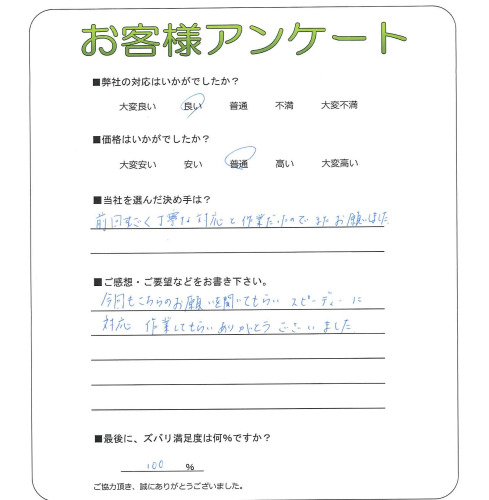 お客様アンケート
■弊社の対応はいかがでしたか？
大変良い 良い 普通 不満 大変不満
■価格はいかがでしたか？
大変安い 安い 普通 高い 大変高い
■当社を選んだ決め手は？
前回すごく丁寧な対応と作業だったのでまたお願いしました
■ご感想・ご要望などをお書き下さい。
今回もこちらのお願いを聞いてもらい スピーディーに
対応 作業してもらいありがとうございました
■最後に、ズバリ満足度は何%ですか？
100 %
ご協力頂き、誠にありがとうございました。